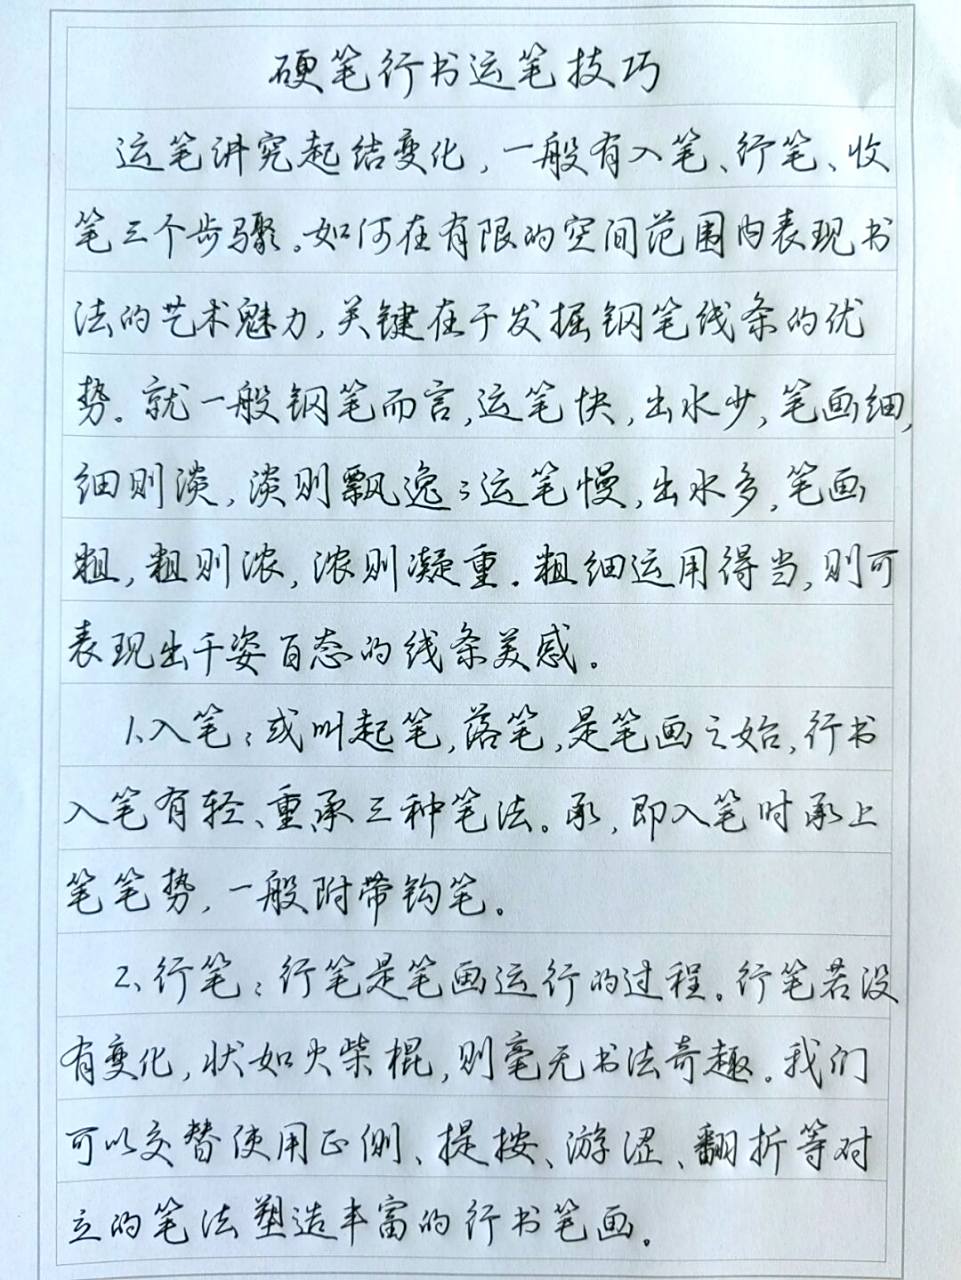 硬笔行书运笔技巧
运笔讲究起结变化，一般有入笔、行笔、收
笔三个步骤。如何在有限的空间范围内表现书
法的艺术魅力，关键在于发掘钢笔线条的优
势。就一般钢笔而言，运笔快，出水少，笔画细，
细则淡，淡则飘逸；运笔慢，出水多，笔画
粗，粗则浓，浓则凝重。粗细运用得当，则可
表现出千姿百态的线条美感。
1、入笔：或叫起笔，落笔，是笔画之始，行书
入笔有轻、重承三种笔法。承，即入笔时承上
笔笔势，一般附带钩笔。
2、行笔：行笔是笔画运行的过程。行笔若没
有变化，状如火柴棍，则毫无书法奇趣。我们
可以交替使用正侧、提按、游涩、翻折等对
立的笔法塑造丰富的行书笔画。